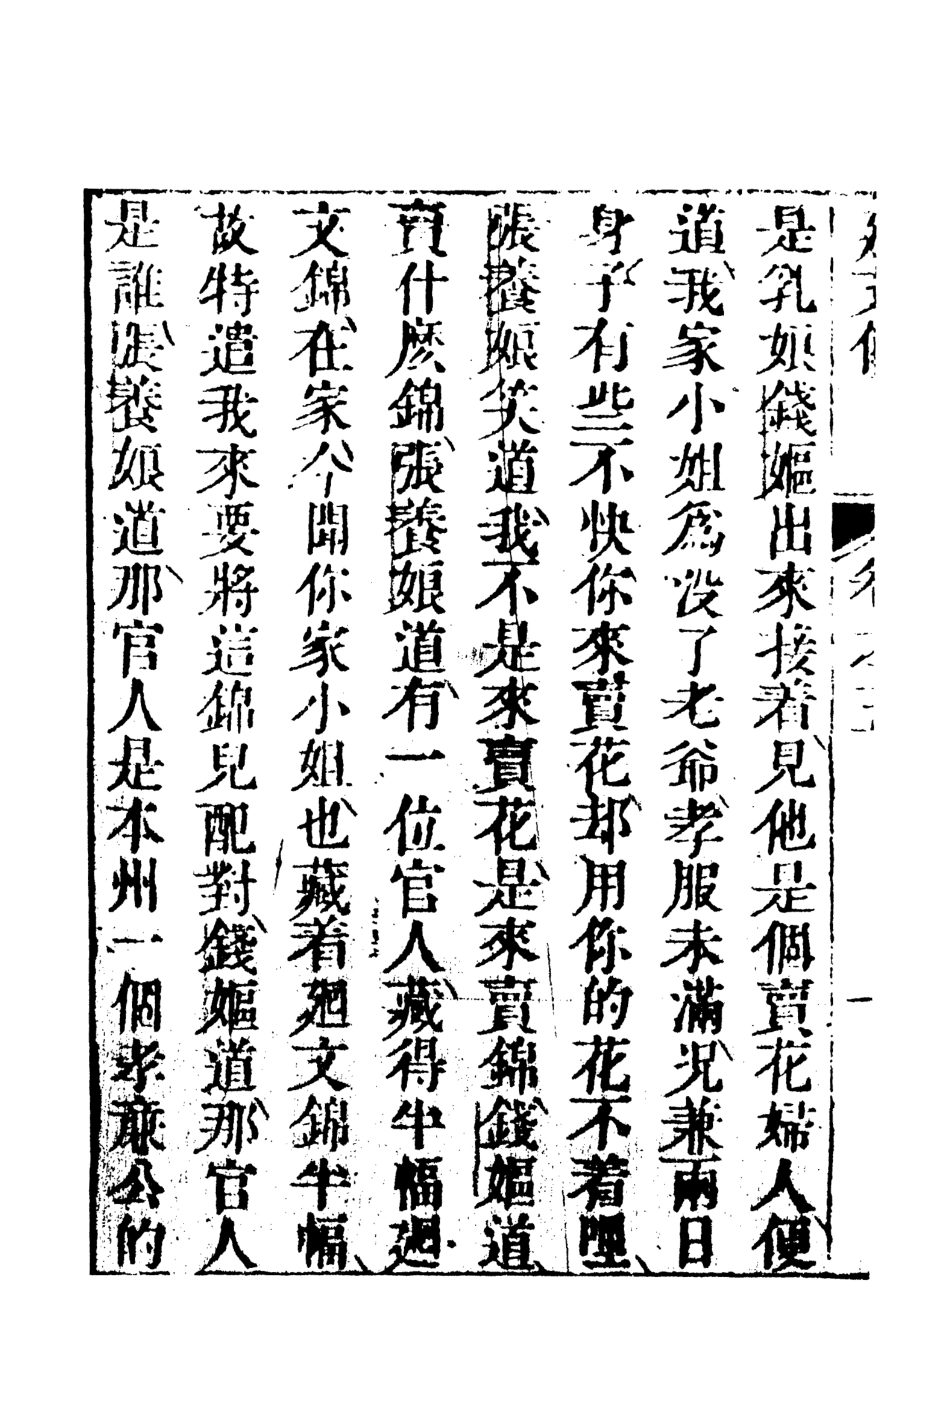 是乳娘錢嫗出來接着見他是個賣花婦人便
道我家小姐爲没了老爺孝服未滿况兼兩日
身子有些不快你來賣花却用你的花不着哩
張養娘笑道我不是來賣花是來賣錦錢嫗道
賣什麽錦張養娘道有一位官人藏得半幅廻
文錦在家今聞你家小姐也藏着廻文錦半幅
故特遣我來要將這錦兒配對錢嫗道那官人
是誰張養娘道那官人是本州一個孝亷公的